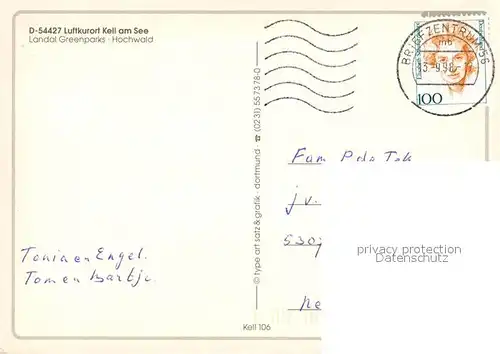 D-54427 Luftkurort Kell am See
Landal Greenparks · Hochwald
BRIEFZENTRUM 56
mb
3.-9.98.-
100
© type art satz & grafik · dortmund · ☎ (0231) 55 73 78-0
Fam
jv.
privacy protection
Datenschutz
Tonia en Engel.
Tom en Bartje.
Kell 106